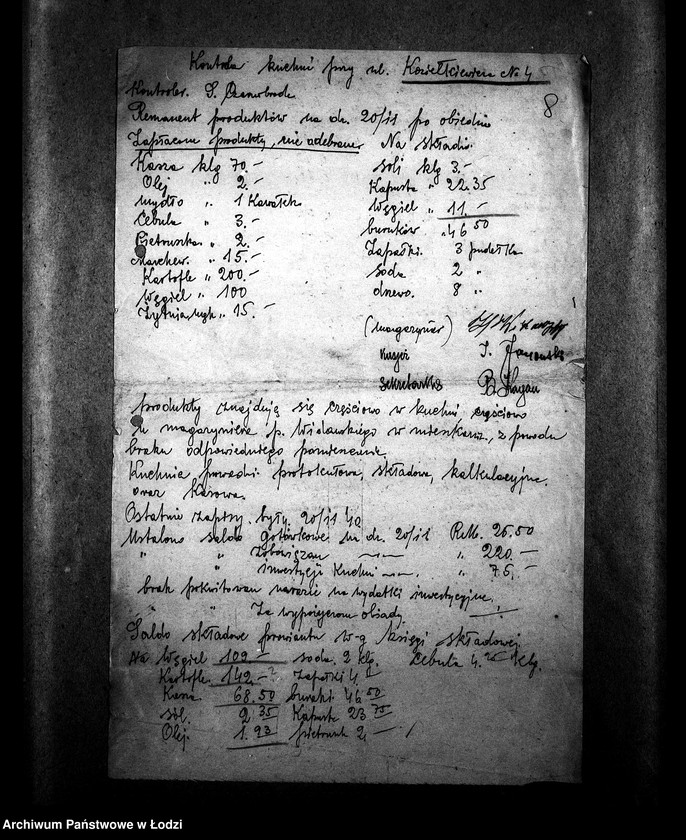 Kontrola kuchni przy ul. Koziełkiewicza No 4
8
Kontroler. S. Czarnobroda
Remanent produktów na dn. 20/11 po obiedzie
Zapłacone produkty, nie odebrane Na składzie
Kasza klg 70.- soli klg 3.-
Olej " 2.- Kapusta " 22.35
mydło " 1 Kawałek Węgiel " 11.-
Cebula " 3.- buraków " 46 50
Pietruszka " 2.- Zapałki. 3 pudełka
Marchew. " 15.- soda 2 "
Kartofle " 200.- drzewo. 8 "
Węgiel " 100
Żytnia mąk " 15.-
(magazynier)
Kasjer J.
Sekretarka B. Kagan
produkty znajdują się częściowo w kuchni częściowo
u magazyniera p. Wielawskiego w mieszkaniu, z powodu
braku odpowiedniego pomieszczenia.
Kuchnia prowadzi: protokułową, składową, kalkulacyjną,
oraz Kasową.
Ostatnie zapisy. były. 20/11 40
Ustalono saldo gotówkowe na dn. 20/11 Rmk. 26.50
" " Zobowiązań " 220.-
" " inwestycji Kuchni " 75.-
brak pokwitowań narazie na wydatki inwestycyjne.
" " Za wypożyczone obiady.
Saldo składowe prowiantu w-g księgi składowej.
Na Węgiel 109.- soda. 2 klg. Cebula 4.25 klg.
Kartofle 142.- Zapałki 4
Kasza 68.50 buraki 46 50
sól. 2 35 Kapusta 23 75
Olej. 1.23 pietruszk 2.-
Archiwum Państwowe w Łodzi